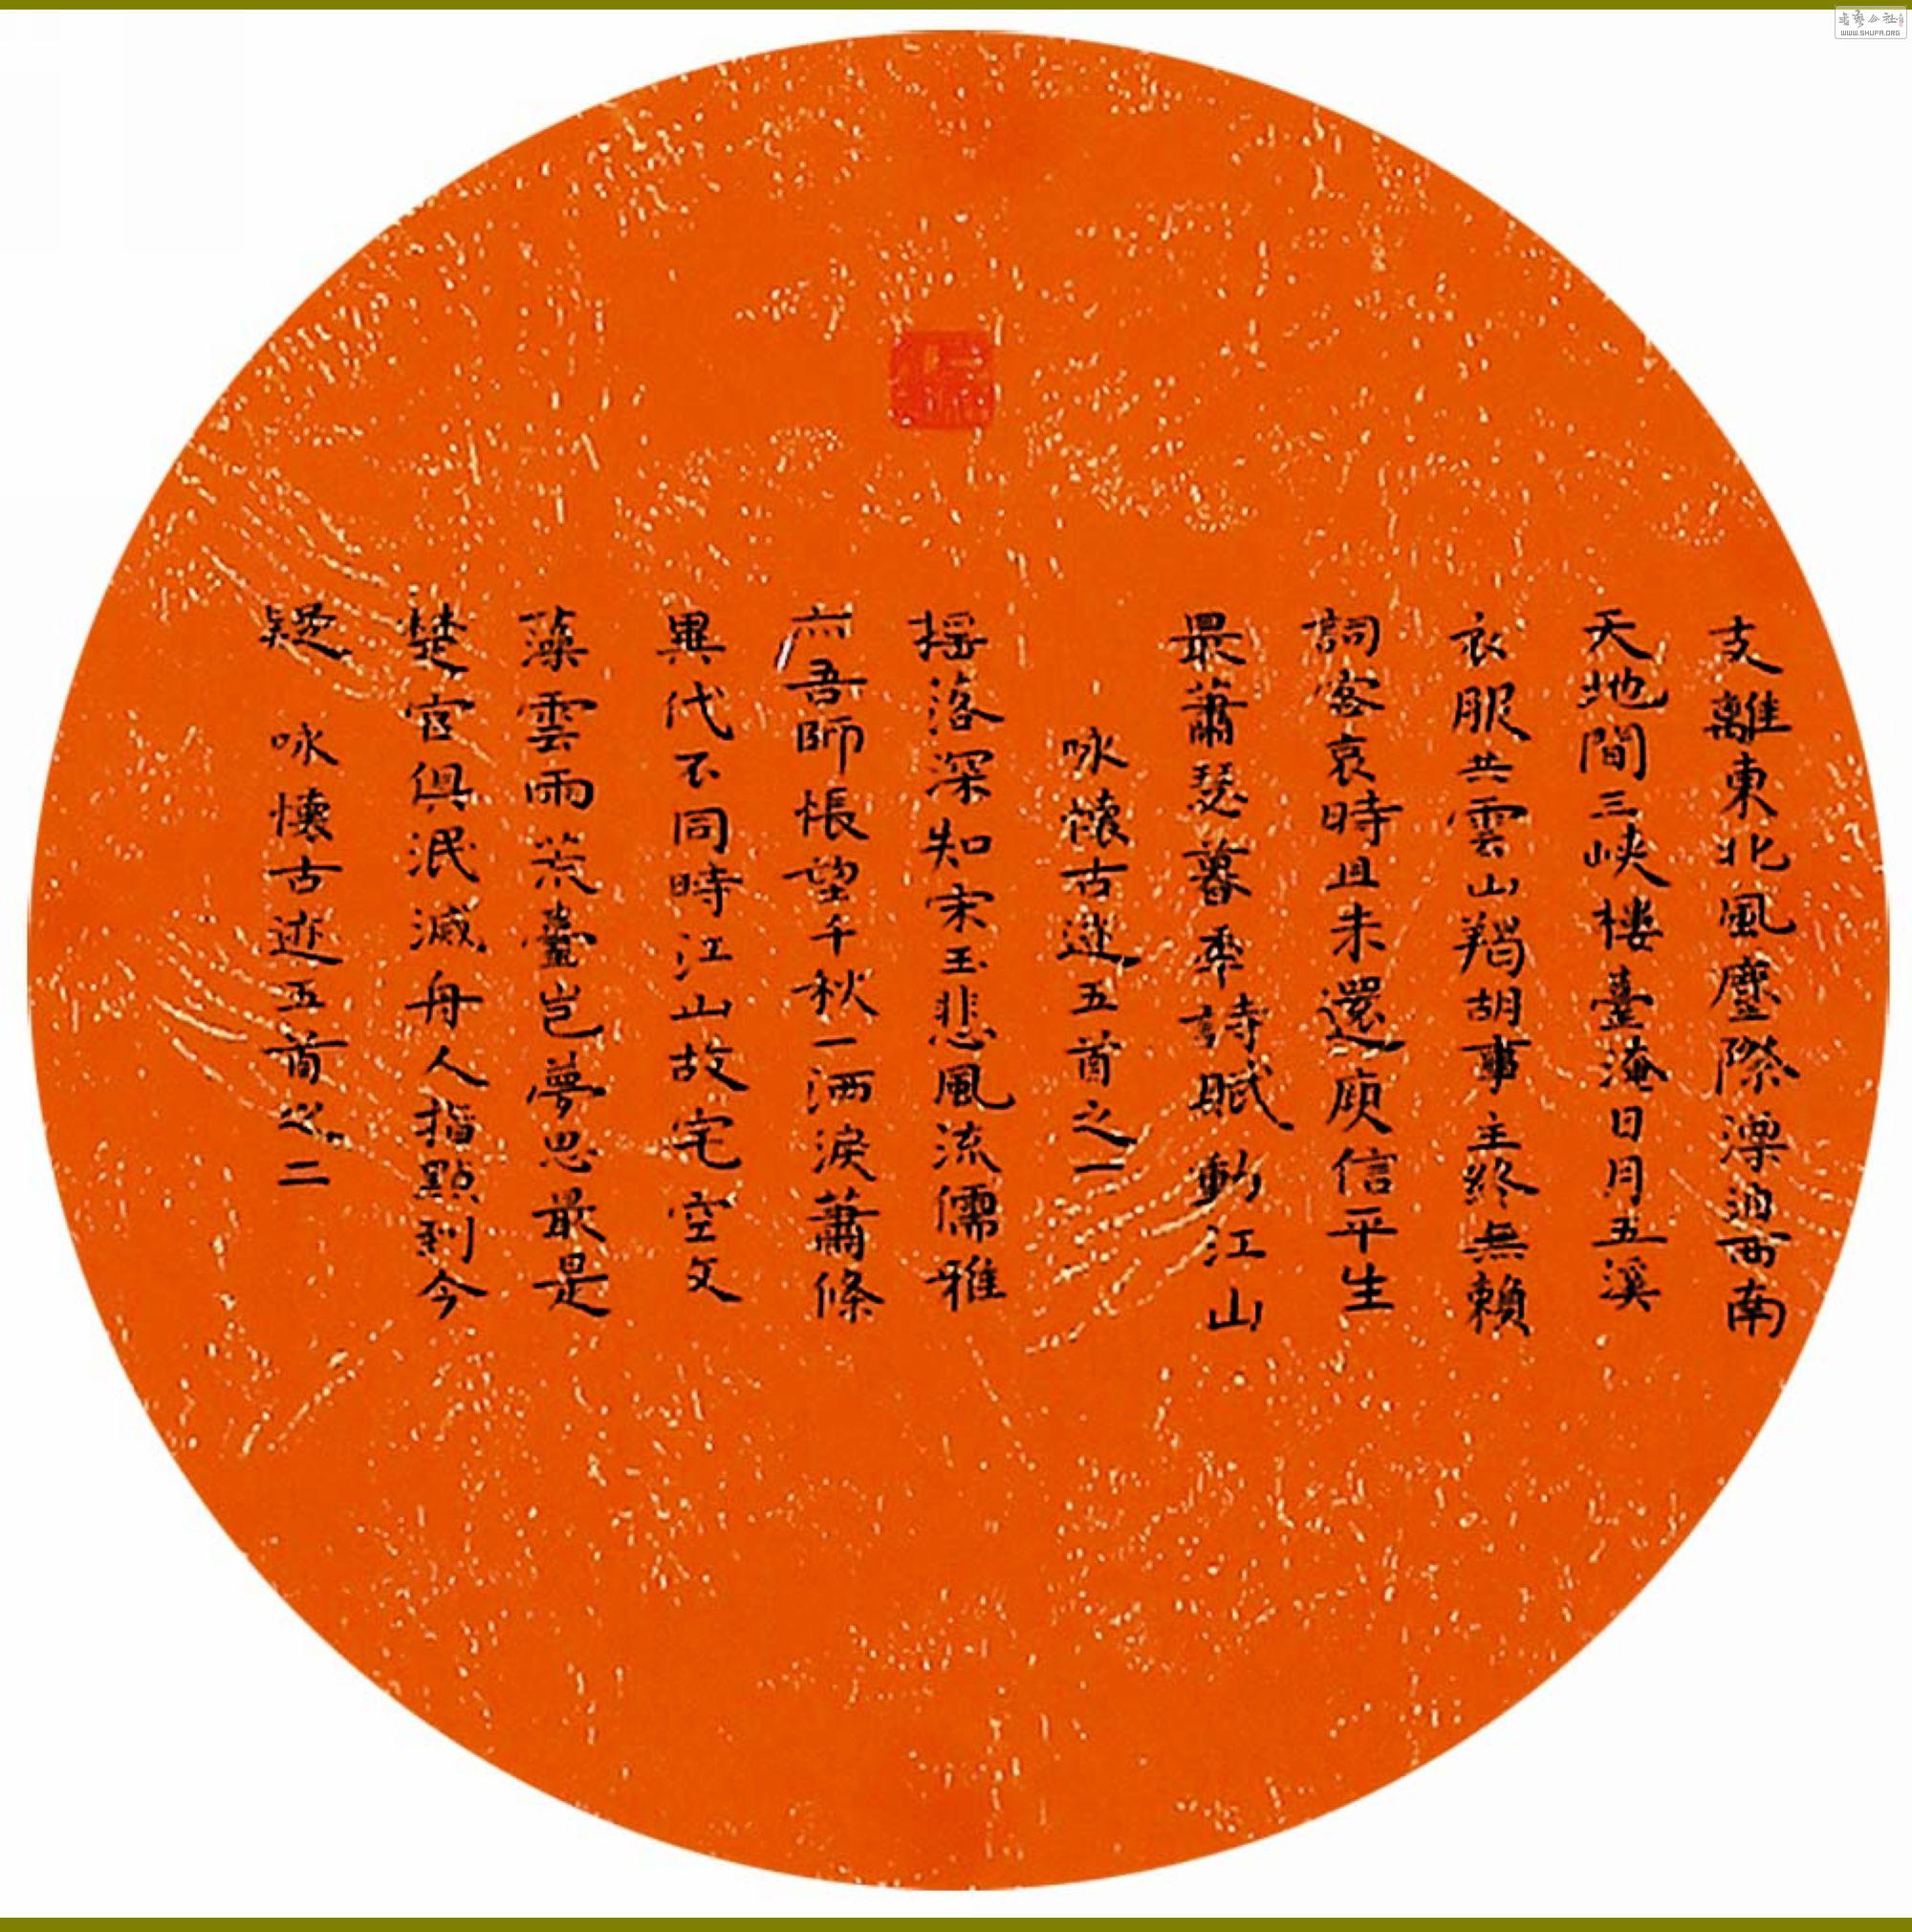 支離東北風塵際漂泊西南
天地間三峽樓臺淹日月五溪
衣服共雲山羯胡事主終無賴
詞客哀時且未還庾信平生
最蕭瑟暮年詩賦動江山
咏懷古迹五首之一
摇落深知宋玉悲風流儒雅
亦吾師悵望千秋一洒淚蕭條
異代不同時江山故宅空文
藻雲雨荒臺豈夢思最是
楚宫俱泯滅舟人指點到今
疑 咏懷古迹五首之二
WWW.SHUFA.ORG